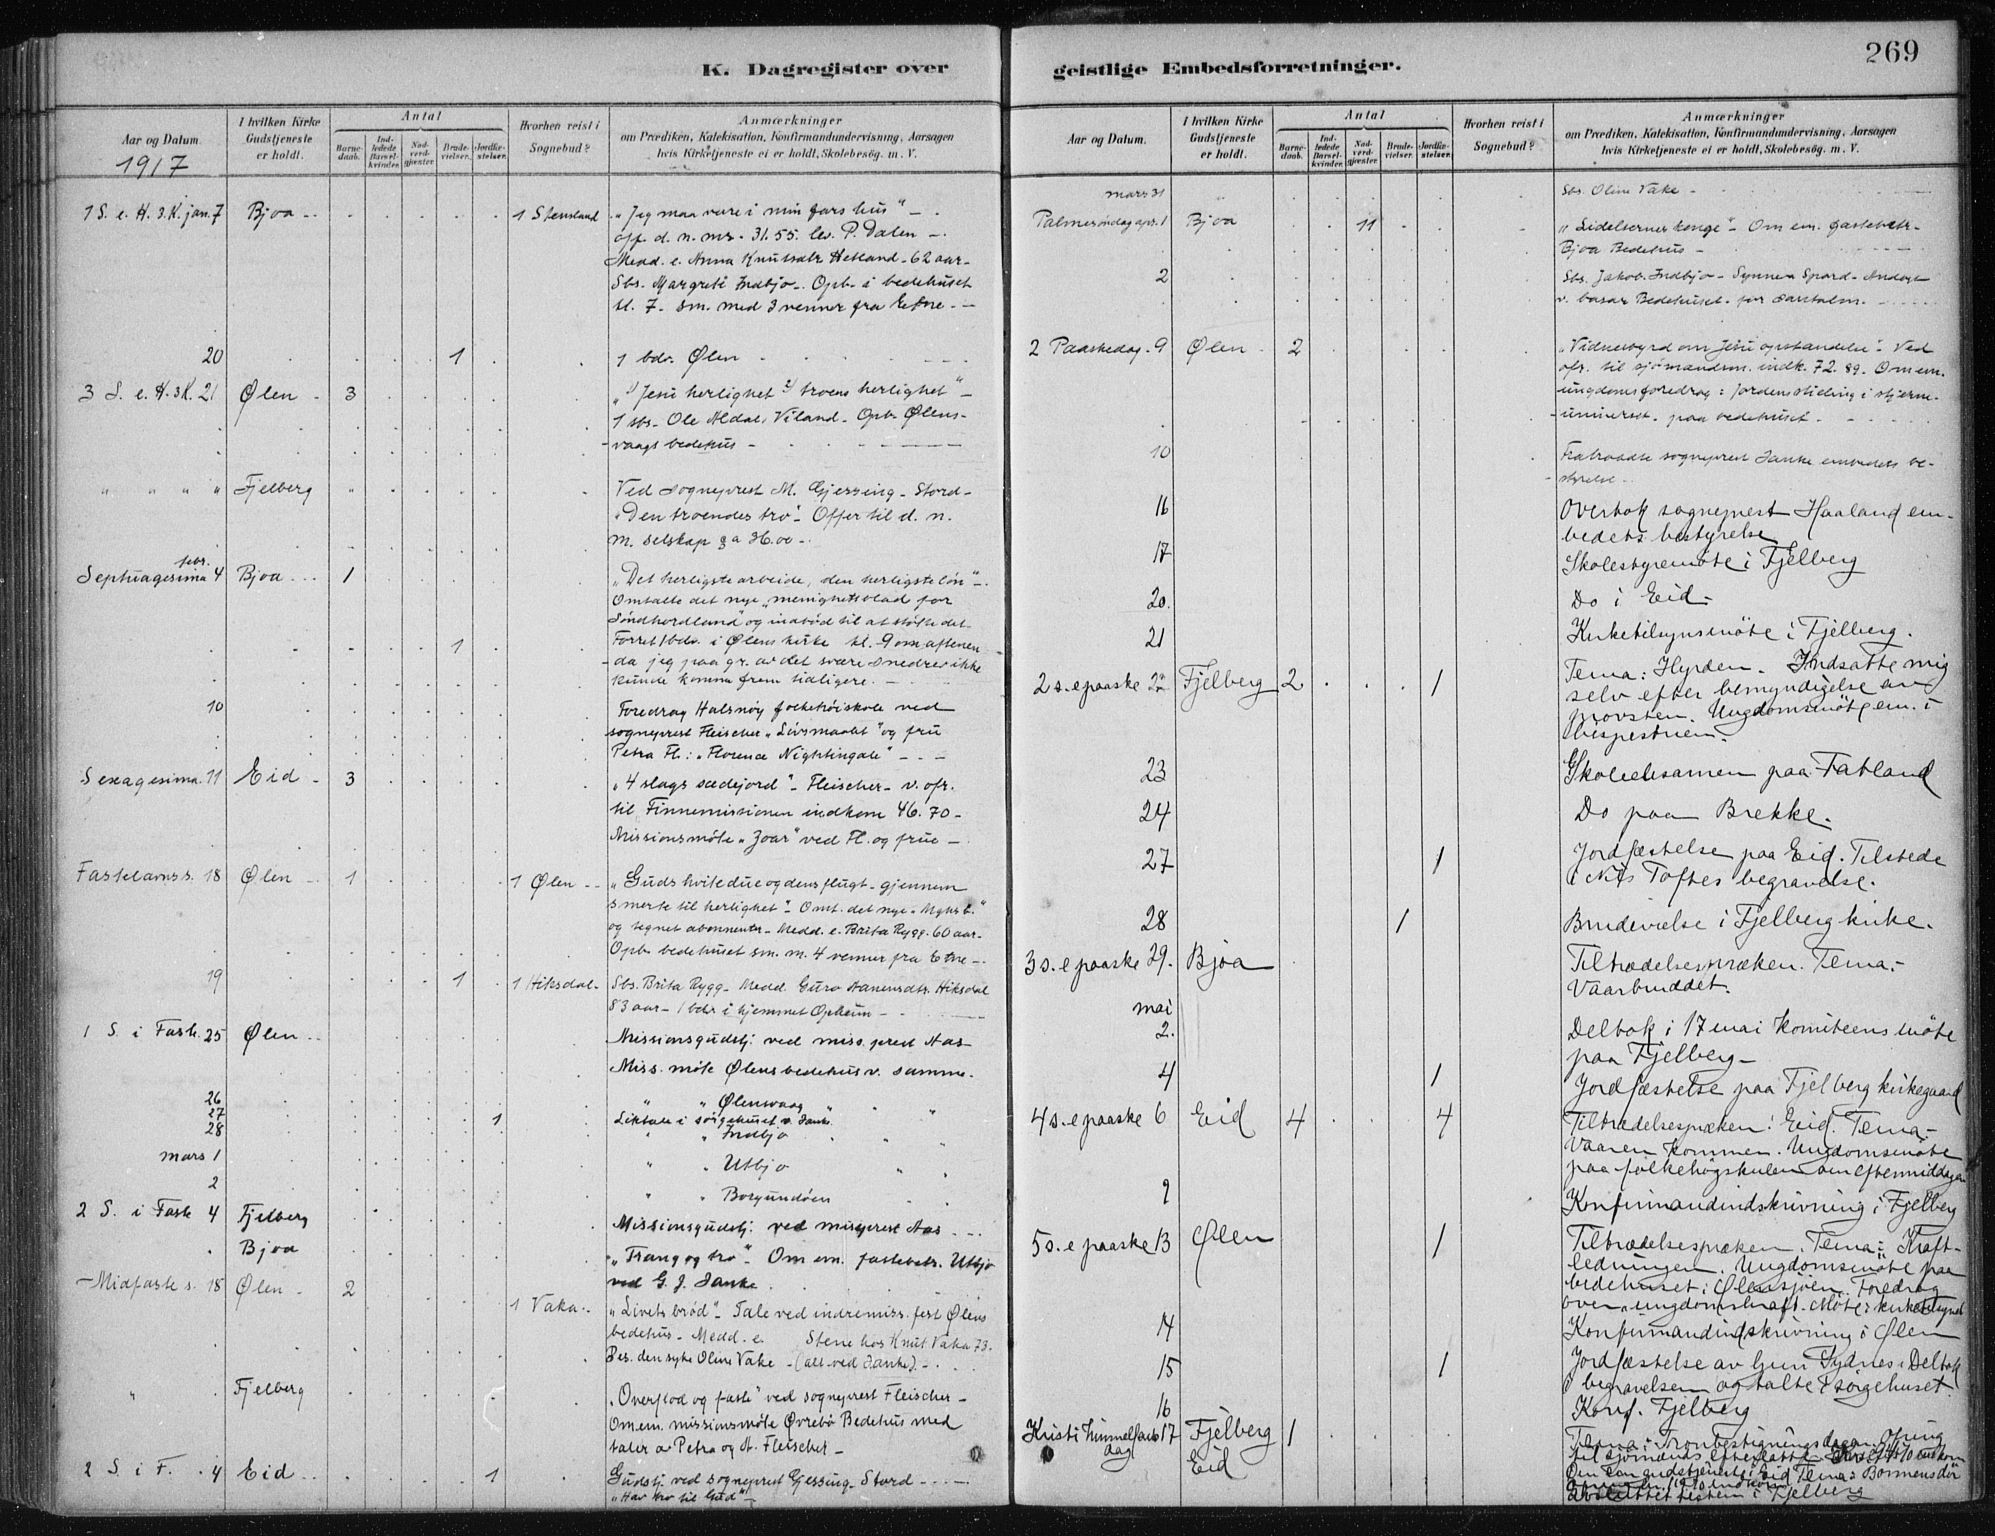 269
K. Dagregister over geistlige Embedsforretninger.
Aar og Datum.
I hvilken Kirke Gudstjeneste er holdt.
Antal
Barnedaab.
Indledede Barselkvinder.
Nadverdgjester.
Brudevielser.
Jordfæstelser.
Hvorhen reist i Sognebud?
Anmærkninger
om Prædiken, Katekisation, Konfirmandundervisning, Aarsagen
hvis Kirketjeneste ei er holdt, Skolebesøg. m. V.
1917
1 S. e. H. 3. K. jan. 7 Bjoa 1 Stensland "Jeg maa være i min fars hus"
off. d. n. ms. 31.55. lev. P. Dalen
Medd. e. Anna Knutsdtr Hetland - 62 aar -
Sbs. Margreti Indbjo - Opb. i bedehuset
kl. 7. sm. med 3 venner fra Etne -
20 1 1 bdv. Ølen
3 S. e. H. 3 K. 21 Ølen 3 "1) Jesu herlighet 2) troens herlighet"
1 sbs. Ole Aldal, Viland - Opb. Ølens-
vaags bedehus -
" " " " Fjelberg Ved sogneprest M. Gjessing - Stord -
"Den troendes tro" - Offer til d. n.
m. selskap 36.00 -
Septuagesima febr. 4 Bjoa 1 "Det herligste arbeide, den herligste løn" -
Omtalte det nye "menighetsblad for
Søndhordland" og indbød til at støtte det
1 Forret. 1 bdv. i Ølens kirke kl. 9 om aftenen
da jeg paa gr. av det svære snedrev ikke
kunde komme frem tidligere. -
10 Foredrag Halsnøy folkehøiskole ved
sogneprest Fleischer "Livsmaalet" og fru
Petra Fl.: "Florence Nightingale" -
Sexagesima. 11 Eid 3 "4 slags sædejord" - Fleischer - v. ofr.
til Finnemissionen indkom 46.70 -
Missionsmøte "Zoar" ved Fl. og frue -
Fastelavnss. 18 Ølen 1 1 Ølen "Guds hvite due og dens flugt - gjennem
smerte til herlighet" - Omt. det nye
og tegnet abonnenter - Medd. e. Brita Rygg. 60 aar -
Opb. bedehuset sm. m. 4 venner fra Etne -
19 1 1 Hiksdal Sbs. Brita Rygg - Medd. Guro Hiksdal
83 aar - 1 bdv i hjemmet Opheim -
1 S. i Faste. 25 Ølen Missionsgudstj. ved miss. prest Aas
Miss. møte Ølens bedehus v. samme.
26 " " Ølensvaag "
27 1 Liktale i sørgehuset v. Janke
28 " " Indbjo
mars 1 " " Utbjo
2 " " Borgundøen
2 S. i Faste 4 Fjelberg Missionsgudstj. ved misjprest Aas
Bjoa "Trang og tro" - Om em. fastebetr. Utbjo
ved G. J. Janke
Midfaste s. 18 Ølen 2 1 Vaka "Livets brød" - Tale ved indremiss. fest Ølens
bedehus - Medd. e. Stene hos Knut Vaka 73.
Bes. den syke Oline Vake - (alt ved Janke) -
" Fjelberg "Overflod og faste" ved sogneprest Fleischer -
Om em. missionsmøte Øvrebø Bedehus med
taler av Petra og A. Fleischer -
2 S. i F. 4 Eid 1 Gudstj. ved sogneprest Gjessing - Stord -
"Hav tro til Gud" -
Aar og Datum.
I hvilken Kirke Gudstjeneste er holdt.
Antal
Barnedaab.
Indledede Barselkvinder.
Nadverdgjester.
Brudevielser.
Jordfæstelser.
Hvorhen reist i Sognebud?
Anmærkninger
om Prædiken, Katekisation, Konfirmandundervisning, Aarsagen
hvis Kirketjeneste ei er holdt, Skolebesøg. m. V.
mars 31 Sbs. Oline Vake -
Palmesøndag apr. 1 Bjoa 11 "Lidelsernes konge" - Om em. fastebetr.
Bjoa Bedehus -
2 Sbs. Jakob Indbjo - Synneva - Andagt
v. basar Bedehuset
2 Paaskedag. 9 Ølen 2 "Vidnesbyrd om Jesu opstandelse". Ved
ofr. til sjømandsm. indk. 72.89. Om em.
ungdomsforedrag: Jordens stilling i stjerne-
universet. paa bedehuset.
10 Fratraadte sogneprest Janke embedets be-
styrelse.
16 Overtok sogneprest Haaland em-
bedets bestyrelse
17 Skolestyremöte i Fjelberg
20. Do i Eid -
21 Kirketilsynsmöte i Fjelberg.
2 s. e paaske 22 Fjelberg 2 1 Tema: Hyrden. Indsatte mig
selv efter bemyndigelse av
provsten. Ungdomsmöte em. i
23 Skoleeksamen paa Fatland
24 Do paa Brekke.
27 1 Jordfæstelse paa Eid. Tilstede
i Nils Toftes begravelse.
28 1 Brudevielse i Fjelberg kirke.
3 s. e paaske 29. Bjoa Tiltrædelsespræken. Tema:
Vaarbruddet.
mai 2. Deltok i 17 mai komiteens möte
paa Fjelberg -
4 1 Jordfæstelse paa Fjelberg kirkegaard
4 s. e paaske 6 Eid 4 4 Tiltrædelsespræken i Eid. Tema:
Vaaren kommer. Ungdomsmöte
paa folkehögskulen om eftermiddagen
9 Konfirmandindskrivning i Fjelberg
5 s. e paaske 13 Ølen 1 Tiltrædelsespræken. Tema: Kraft-
ledningen. Ungdomsmöte paa
bedehuset i Ølensjøen. Foredrag
over ungdomskraft. Möte i kirketilsynet
14 Konfirmandindskrivning i Ølen
15 1 Jordfæstelse av Tydnes. Deltok
i begravelsen og talte i sörgehuset.
16 Konf. Fjelberg
Kristi himmelfartsdag 17 Fjelberg 1 Tema: Tronbestigningsdagen. Ofring
til sjömænds efterlatte
Eid Om em gudstjeneste i Eid Tema: Bönnens dör
i Fjelberg